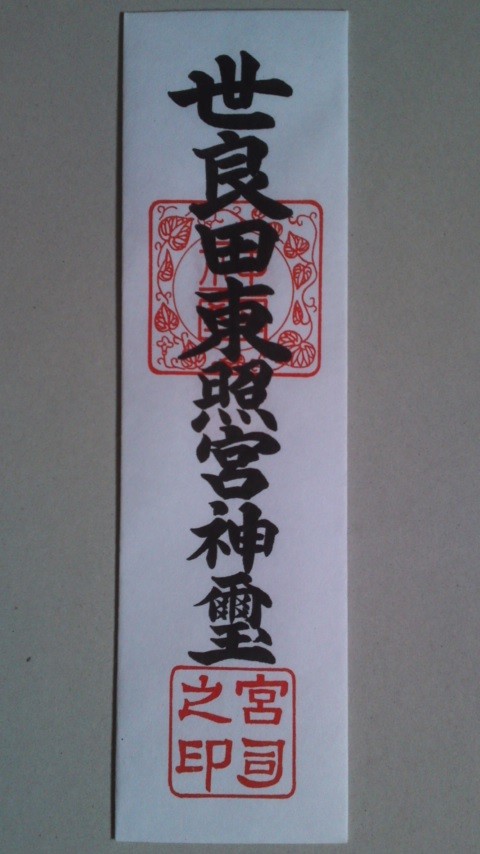 世良田東照宮神璽
宮司
之印